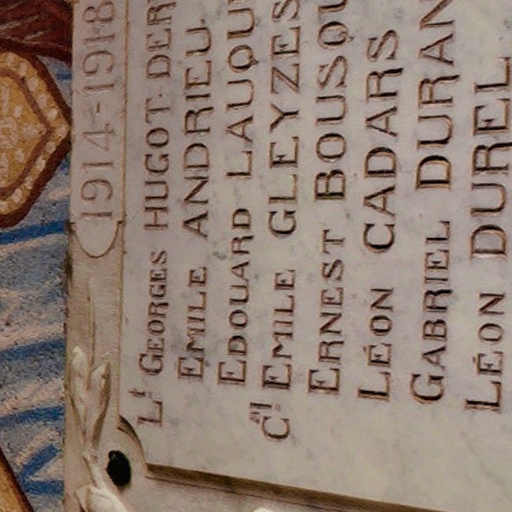 1914-1918
Lt GEORGES HUGOT-DER
ÉMILE ANDRIEU
EDOUARD LAUQU
Cal EMILE GLEYZES
ERNEST BOUSQU
LÉON CADARS
GABRIEL DURAN
LÉON DUREL